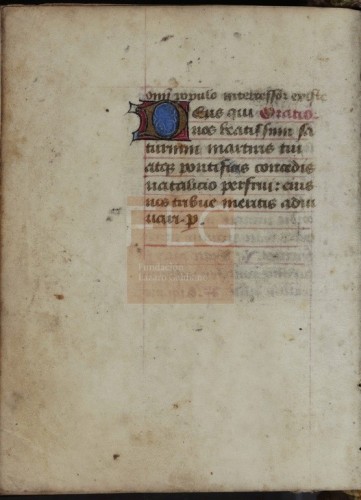 omni populo intercessor existe
Deus qui Oratio.
nos beatissimi sa
turnini martiris tui
atq; pontificis concedis
natalicio perfrui: eius
nos tribue meritis adiu
uari. p.
Fundación